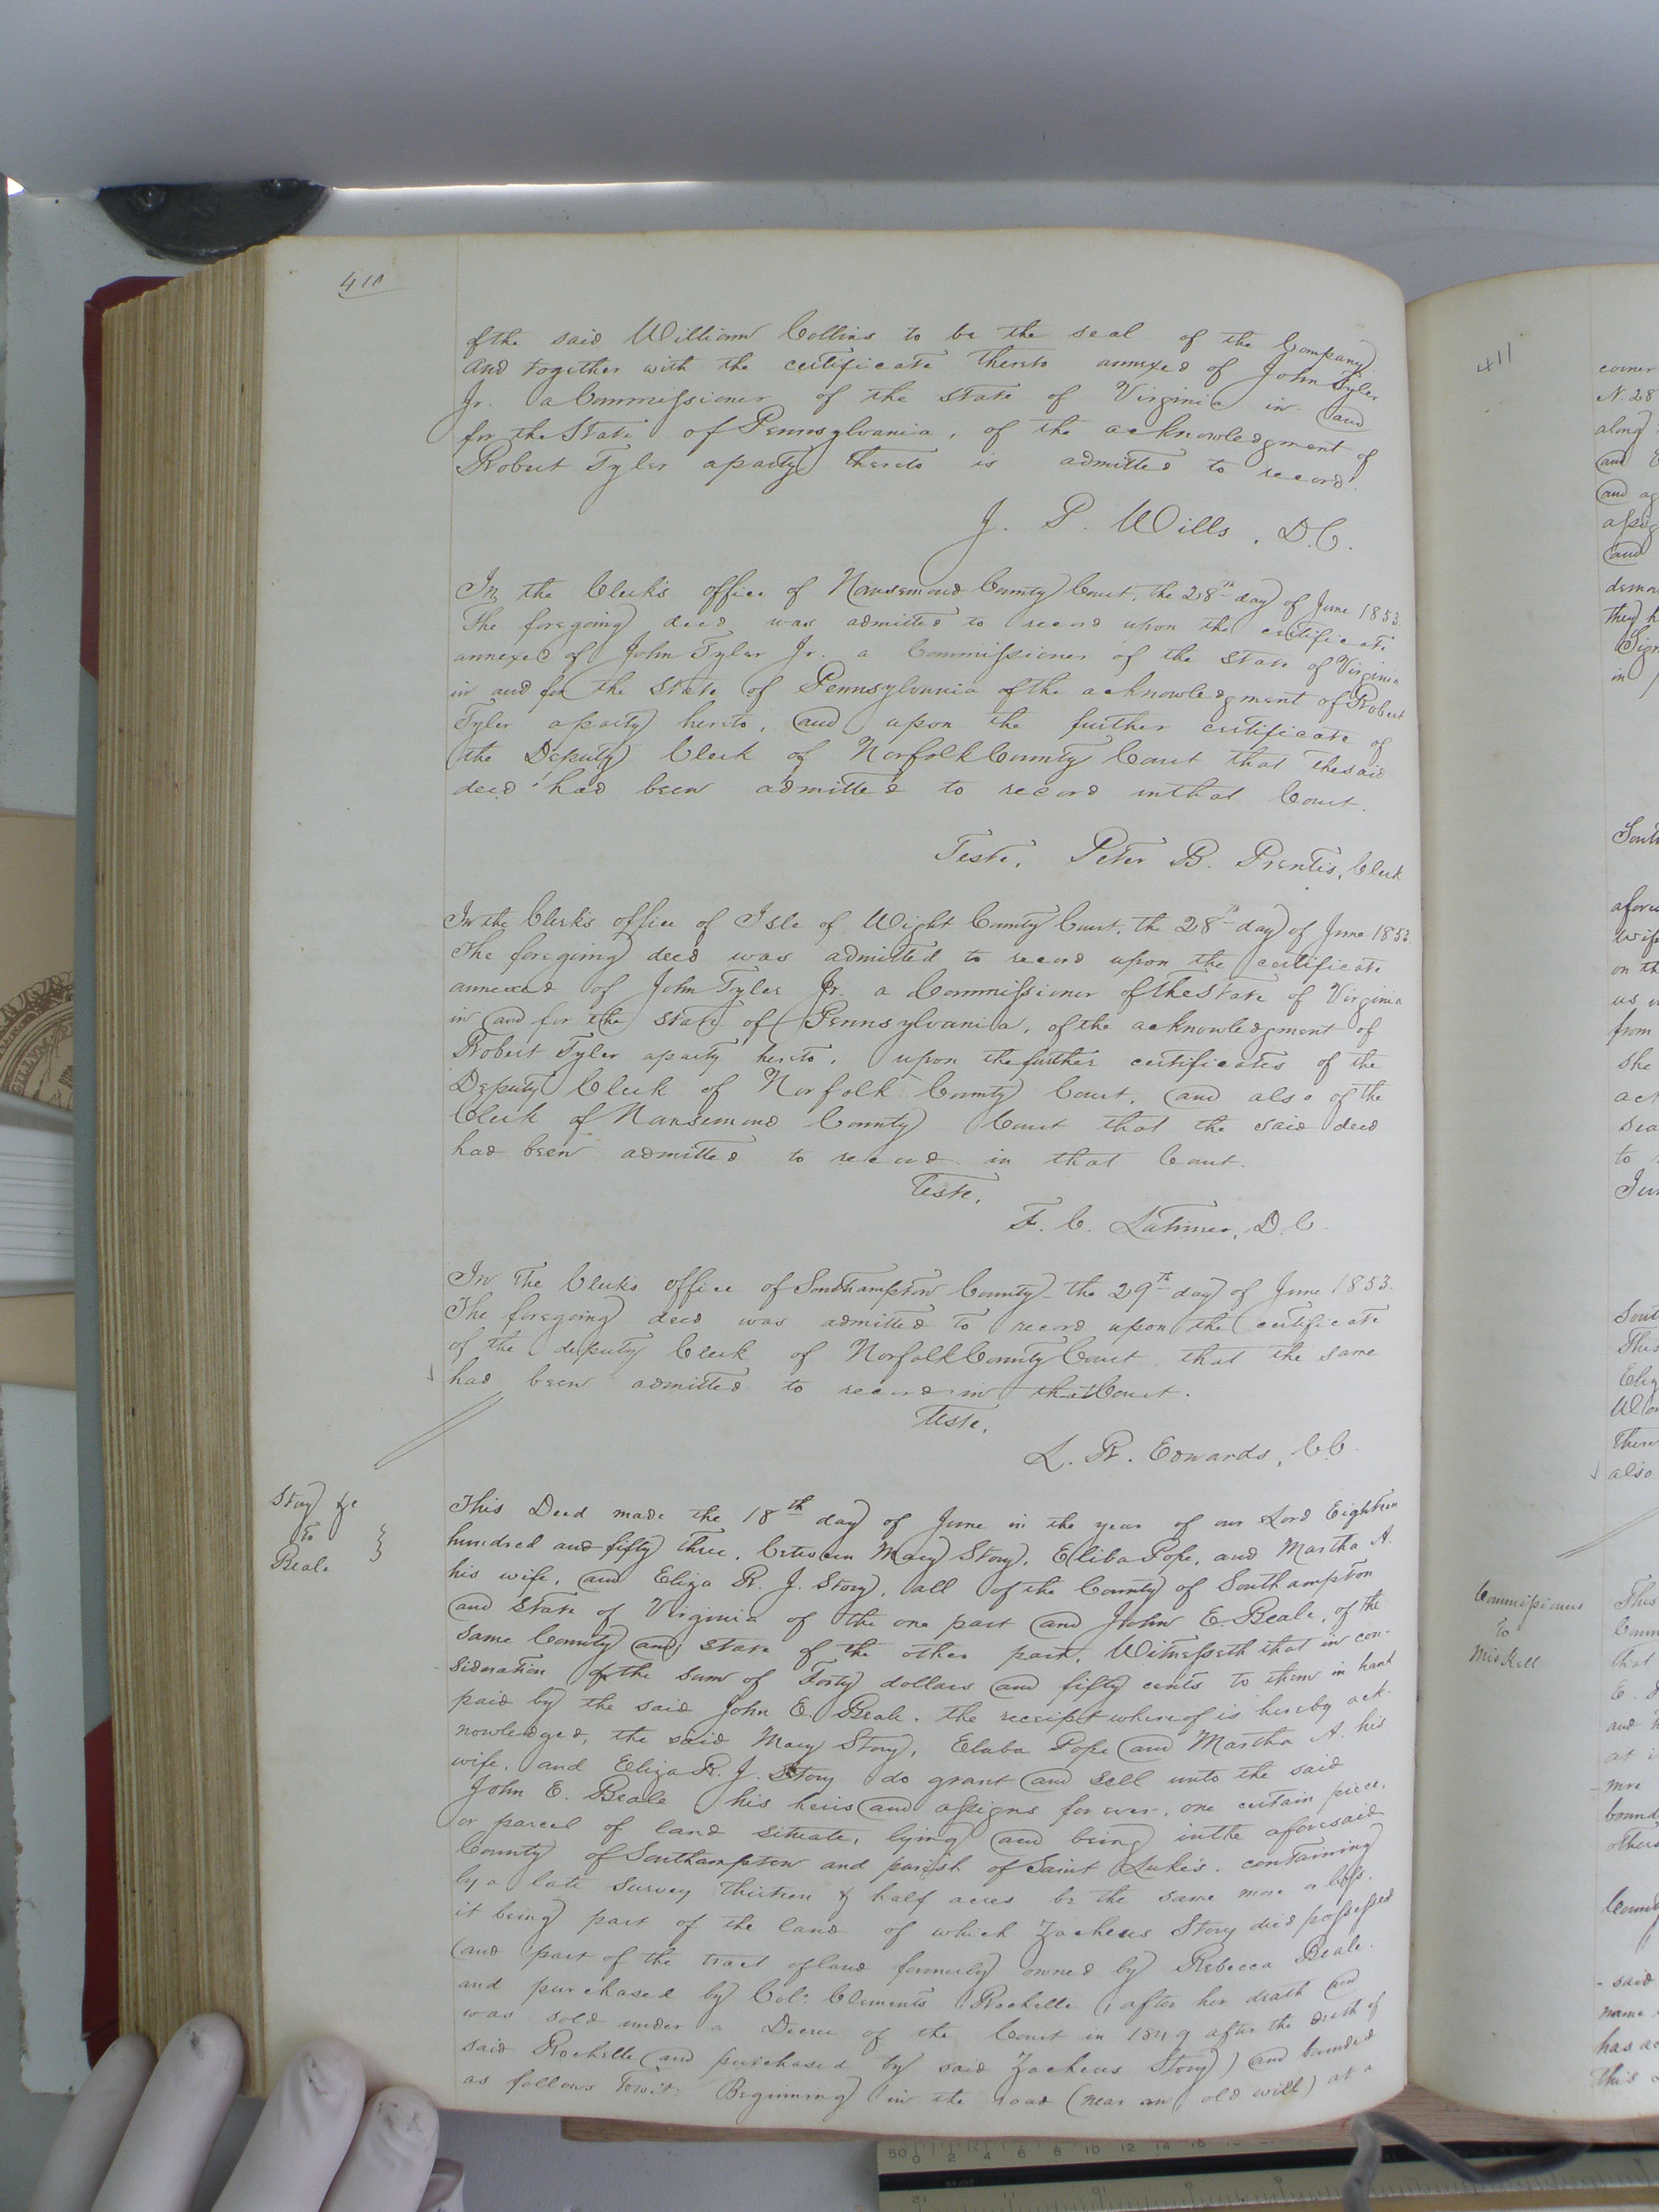 410
of the said William Collins to be the seal of the Company
and together with the certificate thereto annexed of John Tyler
Jr. a Commissioner of the State of Virginia in and
for the State of Pennsylvania, of the acknowledgment of
Robert Tyler a party thereto is admitted to record.
J. P. Wills, D.C.
In the Clerk's office of Nansemond County Court, the 28th day of June 1853.
The foregoing deed was admitted to record upon the certificate
annexed of John Tyler Jr. a Commissioner of the State of Virginia
in and for the State of Pennsylvania of the acknowledgment of Robert
Tyler a party hereto, and upon the further certificate of
the Deputy Clerk of Norfolk County Court that the said
deed had been admitted to record in that Court.
Teste, Peter B. Prentis, Clerk
In the Clerk's office of Isle of Wight County Court, the 28th day of June 1853.
The foregoing deed was admitted to record upon the certificate
annexed of John Tyler Jr. a Commissioner of the State of Virginia
in and for the State of Pennsylvania, of the acknowledgment of
Robert Tyler a party hereto, upon the further certificates of the
Deputy Clerk of Norfolk County Court, and also of the
Clerk of Nansemond County Court that the said deed
had been admitted to record in that Court.
Teste,
F. C. Latimer, D.C.
In The Clerks office of Southampton County the 29th day of June 1853.
The foregoing deed was admitted to record upon the certificate
of the deputy Clerk of Norfolk County Court that the same
had been admitted to record in that Court.
Teste,
L. R. Edwards, C.C.
Story &c
To
Beale
This Deed made the 18th day of June in the year of our Lord Eighteen
hundred and fifty three, between Mary Story, Eliba Pope, and Martha A.
his wife, and Eliza R. J. Story, all of the County of Southampton
and State of Virginia of the one part and John E. Beale, of the
same County and State of the other part, Witnesseth that in con-
sideration of the sum of Forty dollars and fifty cents to them in hand
paid by the said John E. Beale, the receipt whereof is hereby ack-
nowledged, the said Mary Story, Elaba Pope and Martha A. his
wife, and Eliza R. J. Story do grant and sell unto the said
John E. Beale his heirs and assigns forever, one certain piece,
or parcel of land situate, lying and being in the aforesaid
County of Southampton and parish of Saint Luke's, containing
by a late survey thirteen & half acres be the same more or less,
it being part of the land of which Zacheus Story died possessed
(and part of the tract of land formerly owned by Rebecca Beale,
and purchased by Col: Clements Rochelle, after her death and
was sold under a Decree of the Court in 1849 after the death of
said Rochelle and purchased by said Zacheus Story) and bounded
as follows Towit: Beginning in the road (near an old will) at a
411
corner
N. 28
along
and
and
and
they
in
wife
on
from
she
to
also
Commissioners
To
Miskell
This
that
and
at
more
said
name
This